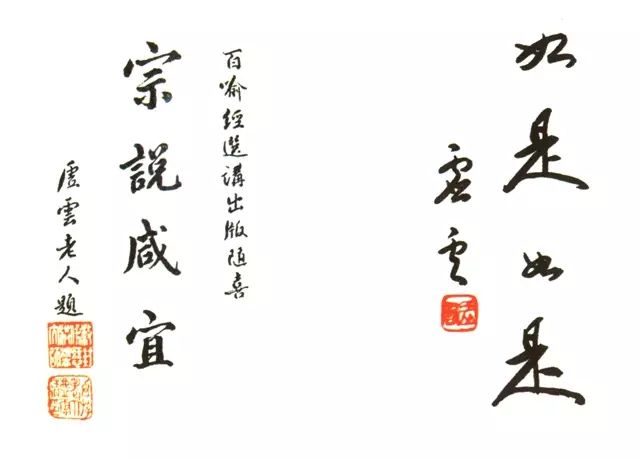 如是如是
虚云
百喻經選講出版随喜
宗說咸宜
虚雲老人題